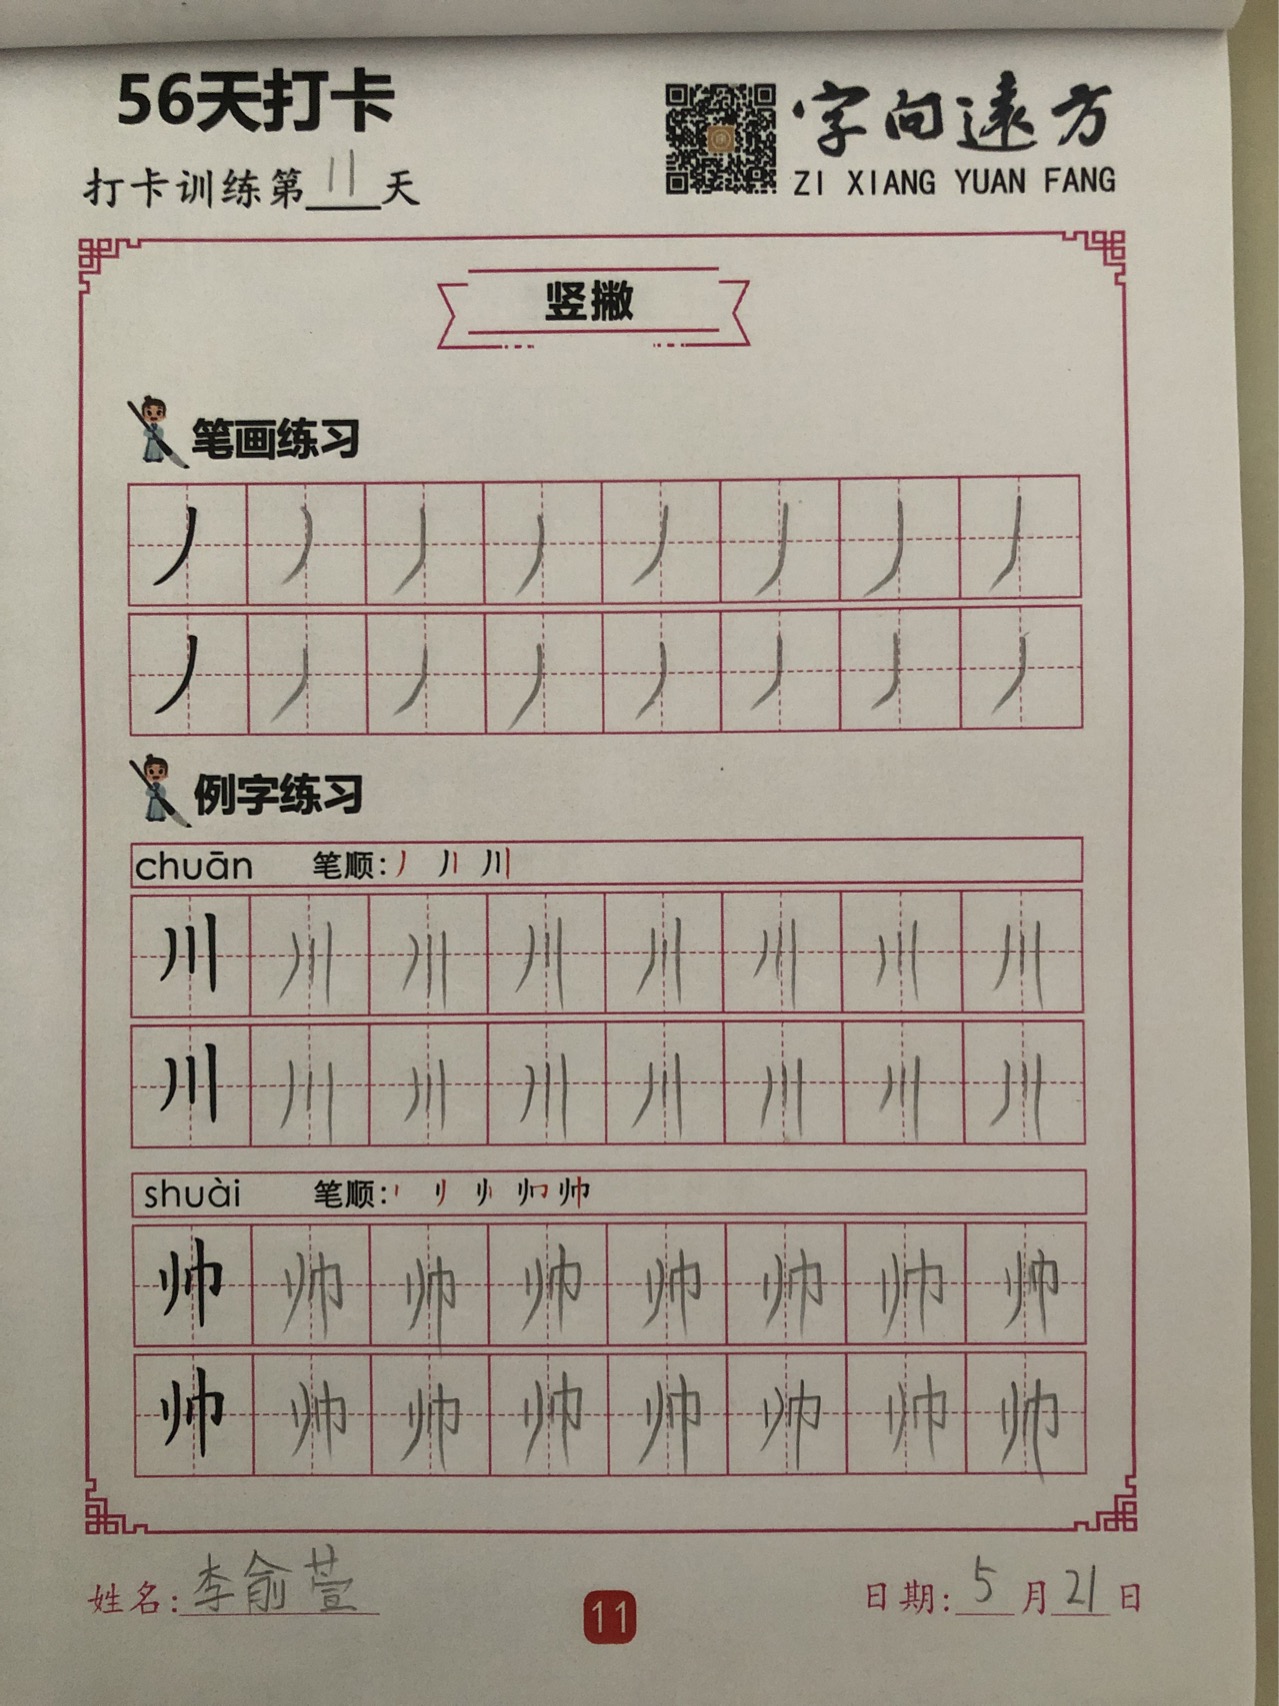 56天打卡
字向远方
打卡训练第11天
ZI XIANG YUAN FANG
竖撇
笔画练习
丿 丿 丿 丿 丿 丿 丿 丿
丿 丿 丿 丿 丿 丿 丿 丿
例字练习
chuān 笔顺: 丿 丿丨 川
川 川 川 川 川 川 川 川
川 川 川 川 川 川 川 川
shuài 笔顺: 帅
帅 帅 帅 帅 帅 帅 帅 帅
帅 帅 帅 帅 帅 帅 帅 帅
姓名: 李俞萱 日期: 5月21日
11